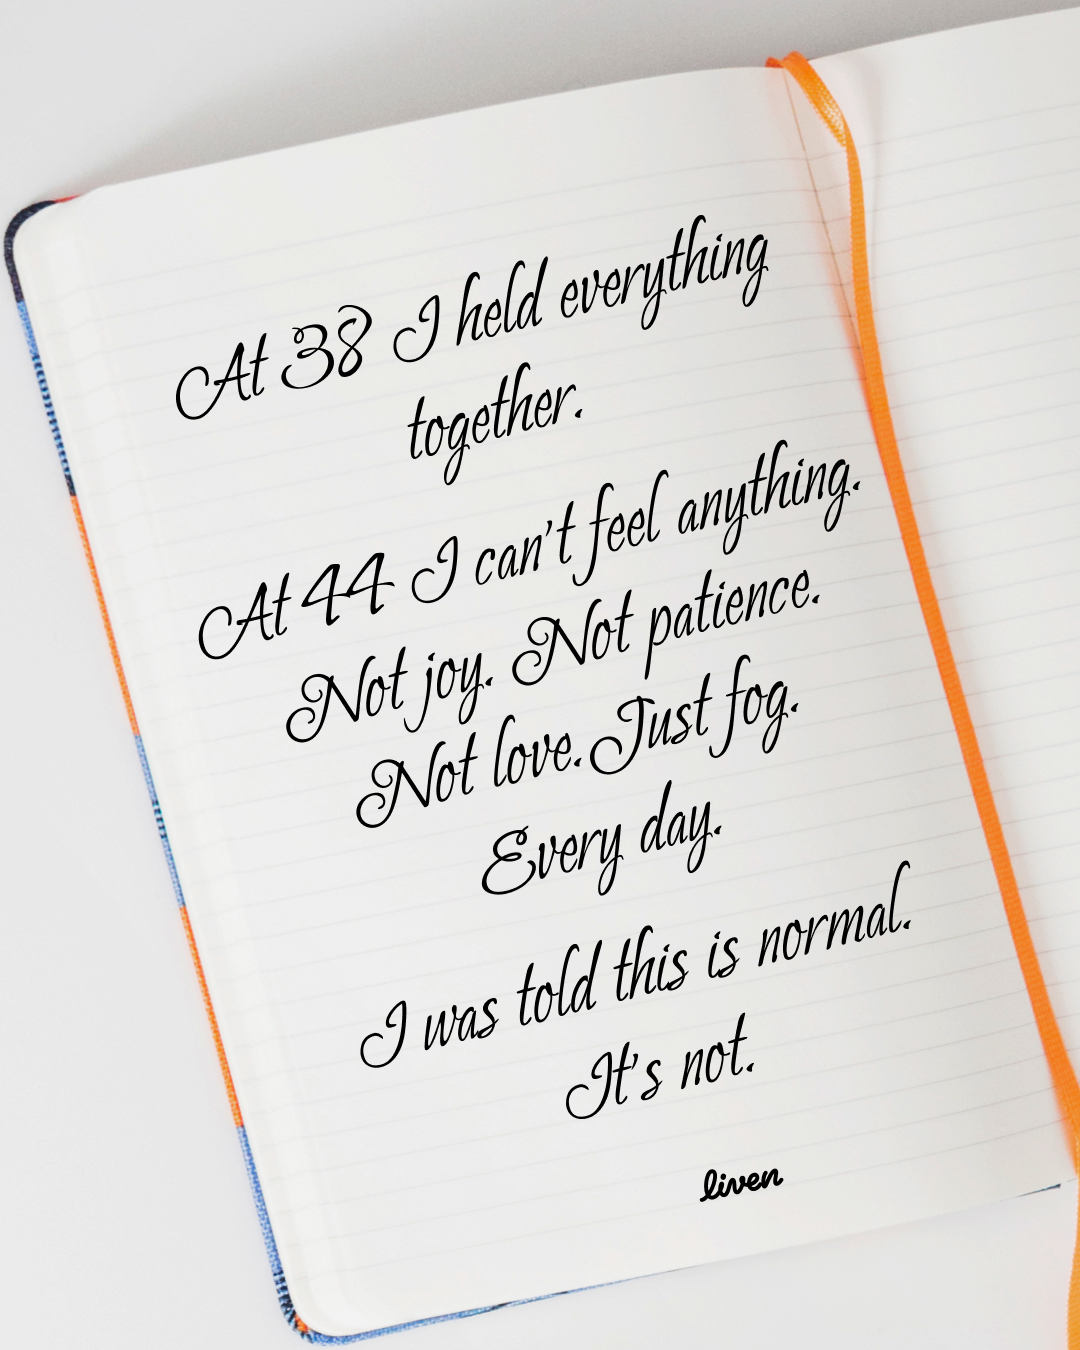 At 38 I held everything
together.
At 44 I can't feel anything.
Not joy. Not patience.
Not love. Just fog.
Every day.
I was told this is normal.
It's not.
liven